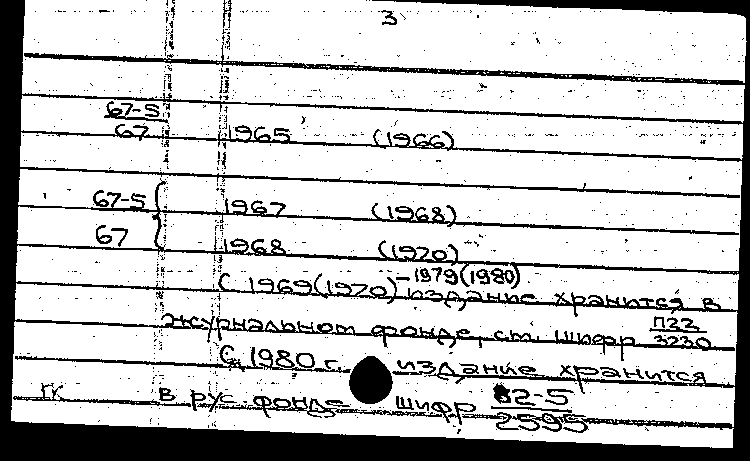 3
67-5
67 1965 (1966)
67-5 { 1967 (1968)
67 1968 (1970)
С 1969(1970)-1979(1980) издание хранится в
журнальном фонде, см. шифр П22/3230
С 1980 г. издание хранится
ГК в рус. фонде шифр 82-5
2595